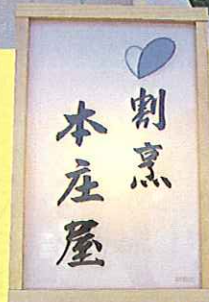 割烹
本庄屋